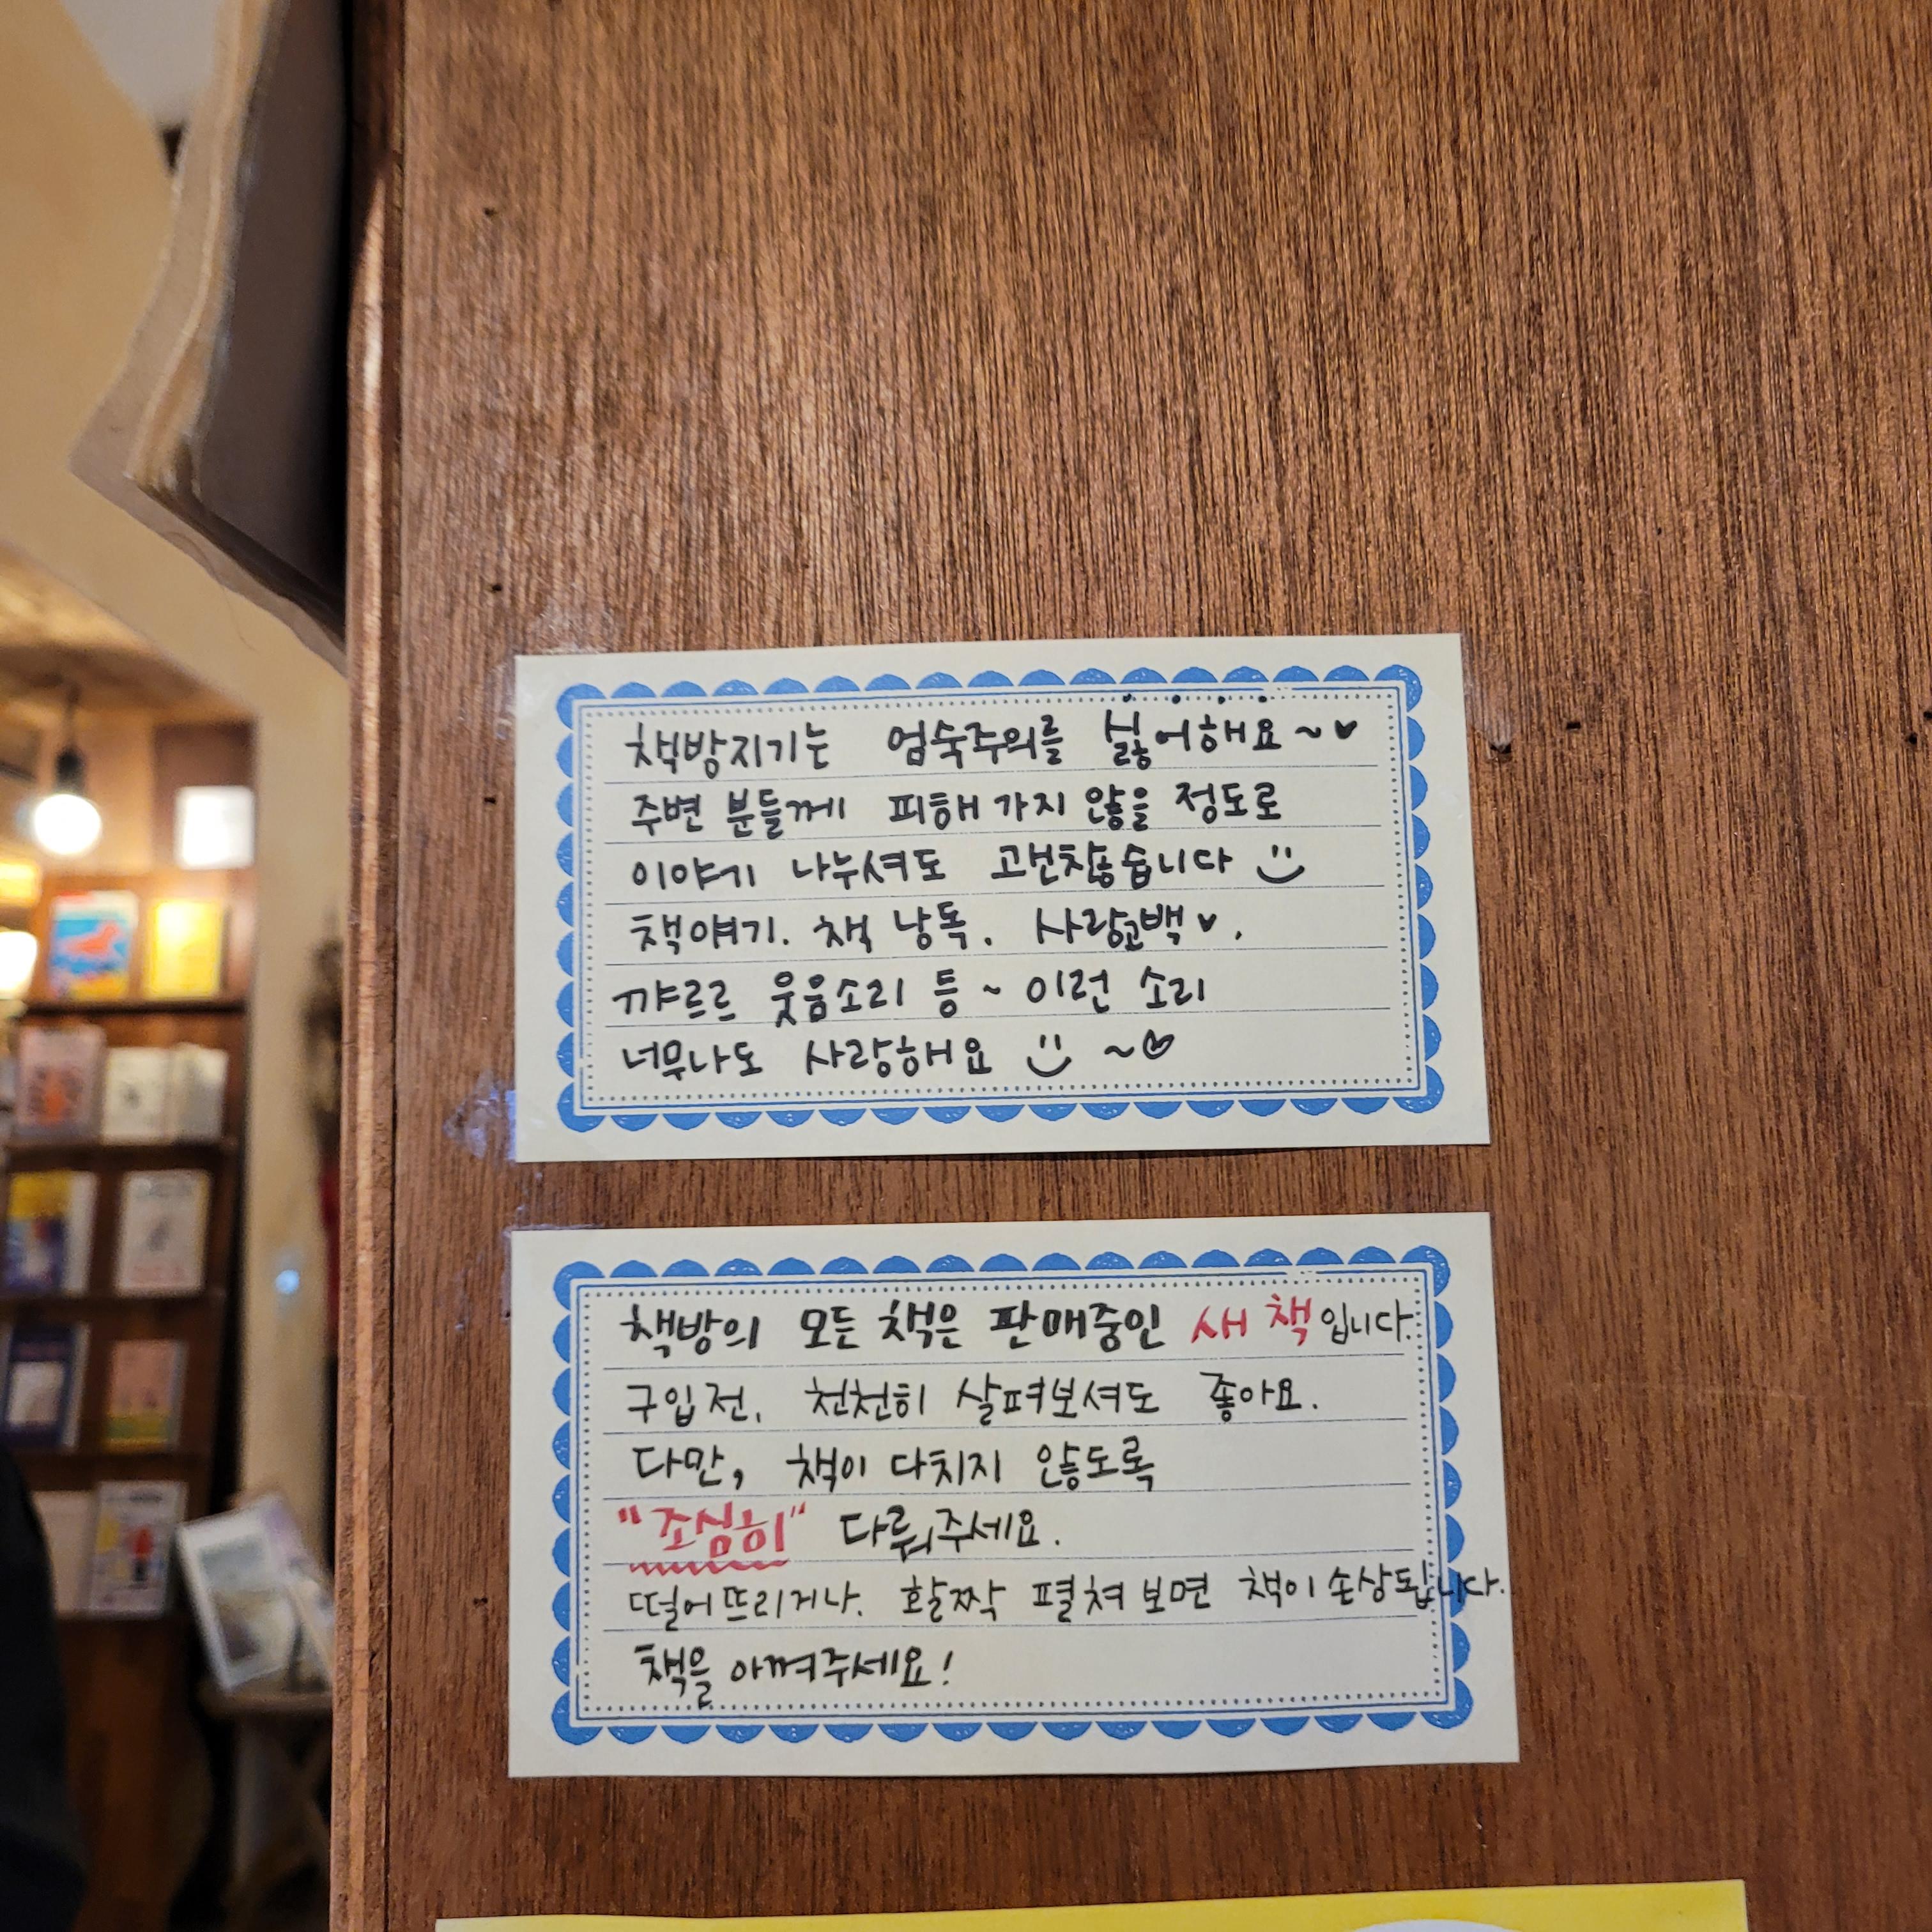 책방지기는 엄숙주의를 싫어해요~♥
주변 분들께 피해 가지 않을 정도로
이야기 나누셔도 괜찮습니다 :)
책얘기. 책 낭독. 사랑고백♥.
꺄르르 웃음소리 등~ 이런 소리
너무나도 사랑해요 :) ~♡
책방의 모든 책은 판매중인 새 책입니다.
구입 전, 천천히 살펴보셔도 좋아요.
다만, 책이 다치지 않도록
"조심히" 다뤄주세요.
떨어뜨리거나. 활짝 펼쳐 보면 책이 손상됩니다.
책을 아껴주세요!